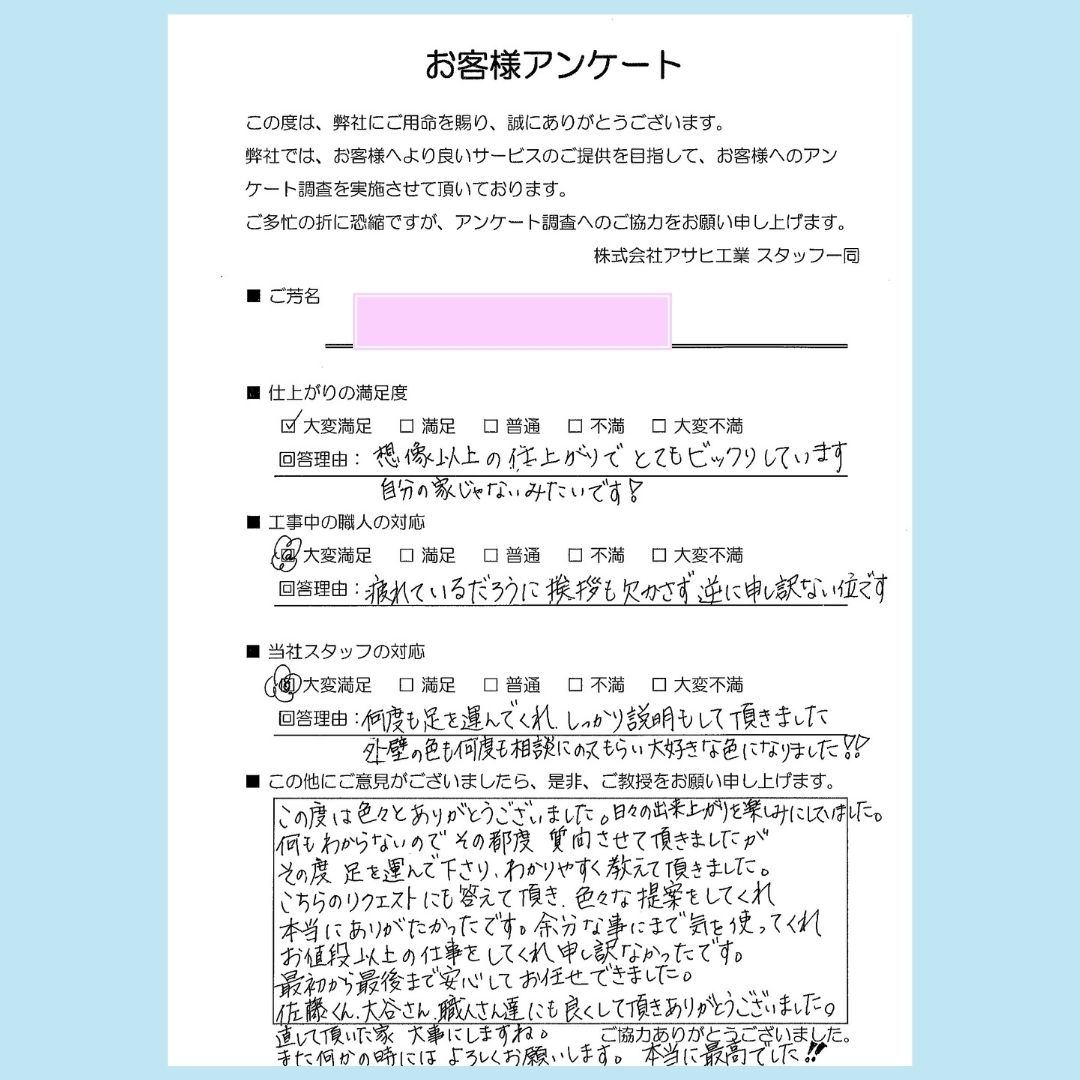 お客様アンケート
この度は、弊社にご用命を賜り、誠にありがとうございます。
弊社では、お客様へより良いサービスのご提供を目指して、お客様へのアン
ケート調査を実施させて頂いております。
ご多忙の折に恐縮ですが、アンケート調査へのご協力をお願い申し上げます。
株式会社アサヒ工業 スタッフ一同
■ ご芳名
■ 仕上がりの満足度
☑大変満足 □ 満足 □ 普通 □ 不満 □ 大変不満
回答理由： 想像以上の仕上がりで とてもビックリしています
自分の家じゃないみたいです!
■ 工事中の職人の対応
大変満足 □ 満足 □ 普通 □ 不満 □ 大変不満
回答理由：疲れているだろうに 挨拶も欠かさず 逆に申し訳ない位です
■ 当社スタッフの対応
大変満足 □ 満足 □ 普通 □ 不満 □ 大変不満
回答理由：何度も足を運んでくれ、しっかり説明もして頂きました
外壁の色も何度も相談にのってもらい 大好きな色になりました!!
■ この他にご意見がございましたら、是非、ご教授をお願い申し上げます。
この度は色々とありがとうございました。日々の出来上がりを楽しみにしていました。
何もわからないので その都度 質問させて頂きましたが
その度 足を運んで下さり、わかりやすく教えて頂きました。
こちらのリクエストにも答えて頂き、色々な提案をしてくれ
本当にありがたかったです。余分な事にまで気を使ってくれ
お値段以上の仕事をしてくれ申し訳なかったです。
最初から最後まで安心してお任せできました。
佐藤くん、大谷さん、職人さん達にも良くして頂きありがとうございました。
直して頂いた家 大事にしますね。 ご協力ありがとうございました。
また何かの時には よろしくお願いします。 本当に最高でした!!